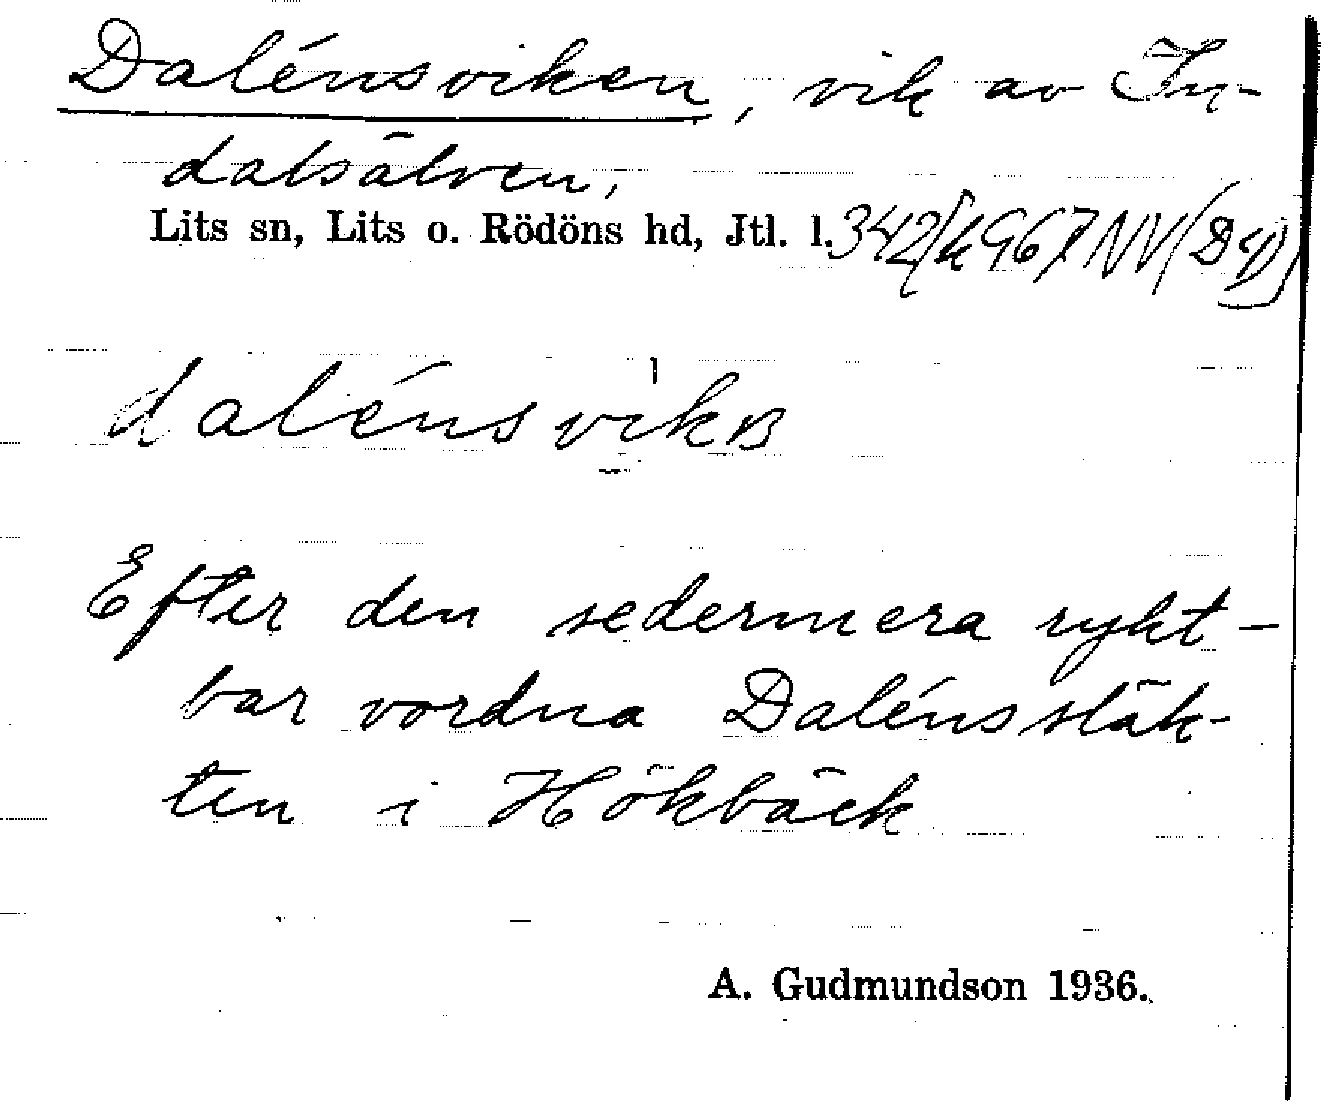 Dalénsviken, vik av In-
dalsälven,
Lits sn, Lits o. Rödöns hd, Jtl. l. 342/k 967 NV
dalénsvikɞ
Efter den sedermera rykt-
bar vordna Dalénssläk-
ten i Hökbäck
A. Gudmundson 1936.